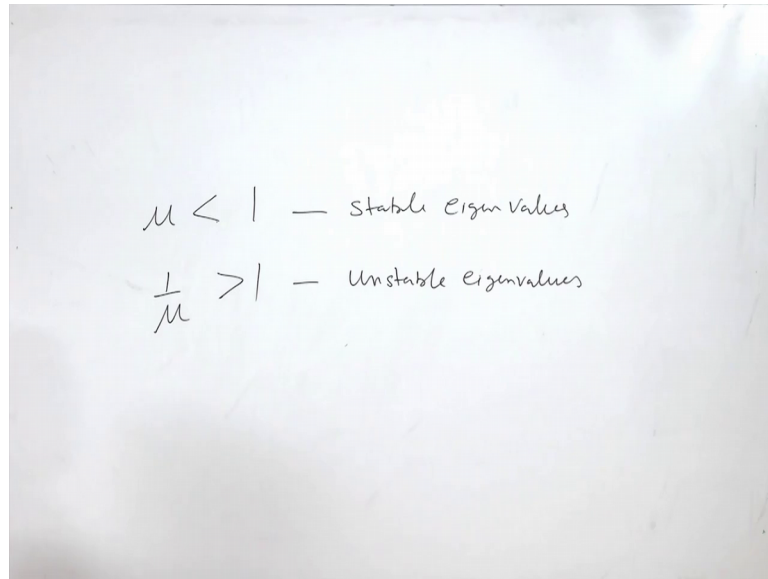 μ < 1 — Stable eigenvalues
1/μ > 1 — Unstable eigenvalues